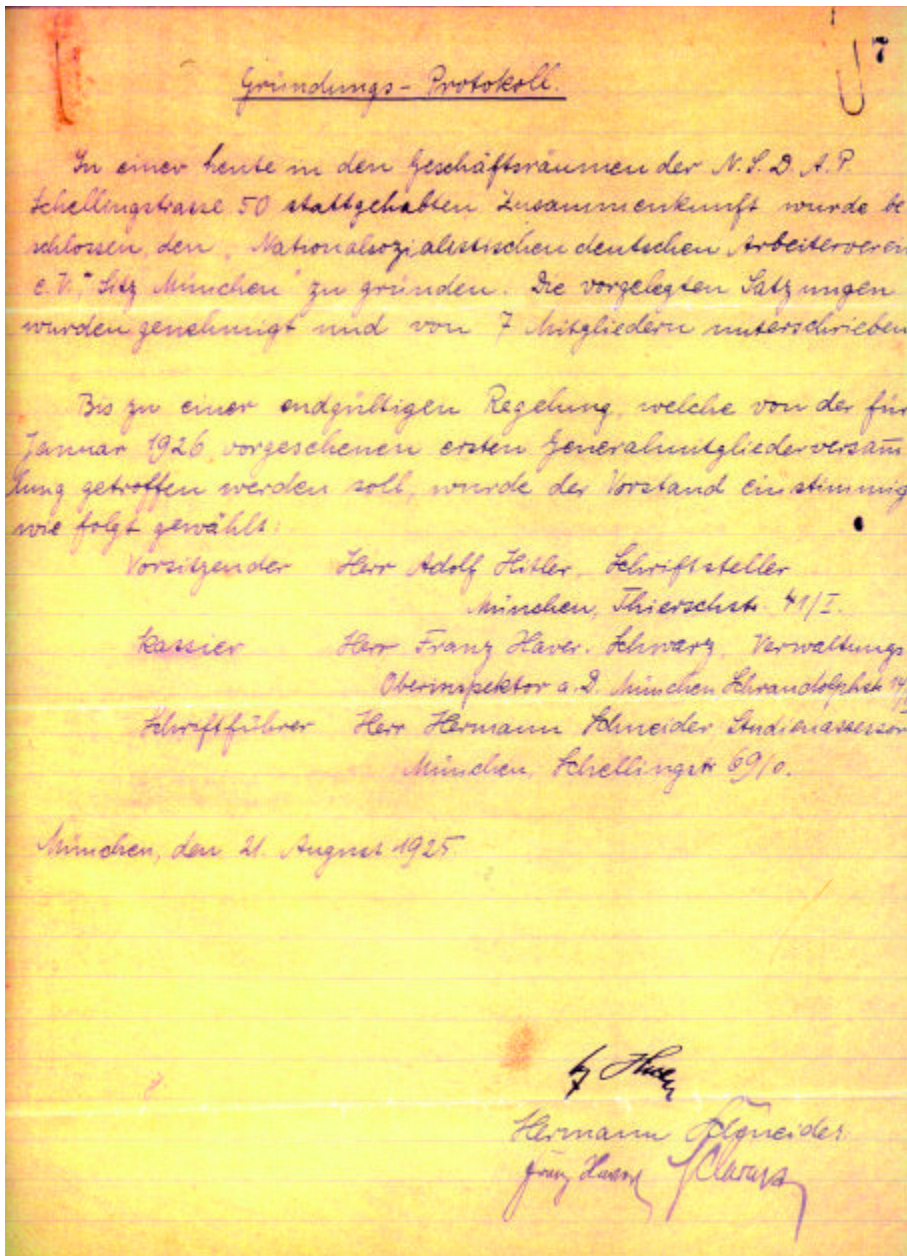 7
Gründungs-Protokoll.
In einer heute in den Geschäftsräumen der N.S.D.A.P.
Schellingstrasse 50 stattgehabten Zusammenkunft wurde be
schlossen, den „Nationalsozialistischen deutschen Arbeiterverein
e.V.," Sitz München" zu gründen. Die vorgelegten Satzungen
wurden genehmigt und von 7 Mitgliedern unterschrieben
Bis zu einer endgültigen Regelung, welche von der für
Januar 1926 vorgesehenen ersten Generalmitgliederversam̅
lung getroffen werden soll, wurde der Vorstand einstimmig
wie folgt gewählt:
Vorsitzender Herr Adolf Hitler, Schriftsteller
München, Thierschstr. 41/I.
Kassier Herr Franz Xaver. Schwarz, Verwaltungs
Oberinspektor a.D. München Schraudolphstr 14/
Schriftführer Herr Hermann Schneider Studienassessor
München, Schellingstr 69/0.
München, den 21. August 1925.
Hitler
Hermann Schneider.
Franz Xaver Schwarz